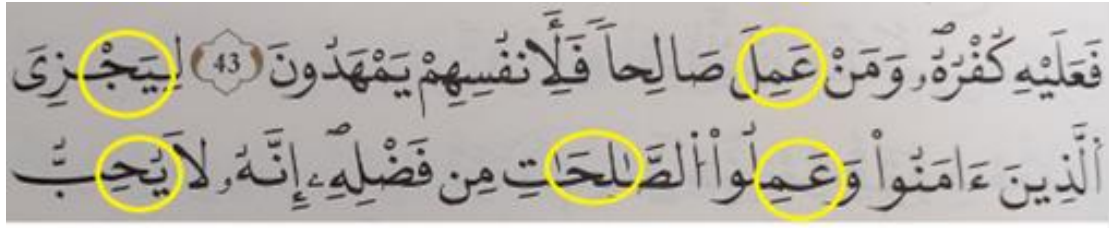 فَعَلَيْهِ كُفْرُهُۥ وَمَنْ عَمِلَ صَالِحاً فَلِأَنفُسِهِمْ يَمْهَدُونَ 43 لِيَجْزِىَ
اَ۬لذِينَ ءَامَنُواْ وَعَمِلُواْ اُ۬لصَّٰلِحَٰتِ مِن فَضْلِهِۦٓ إِنَّهُۥ لَا يُحِبُّ